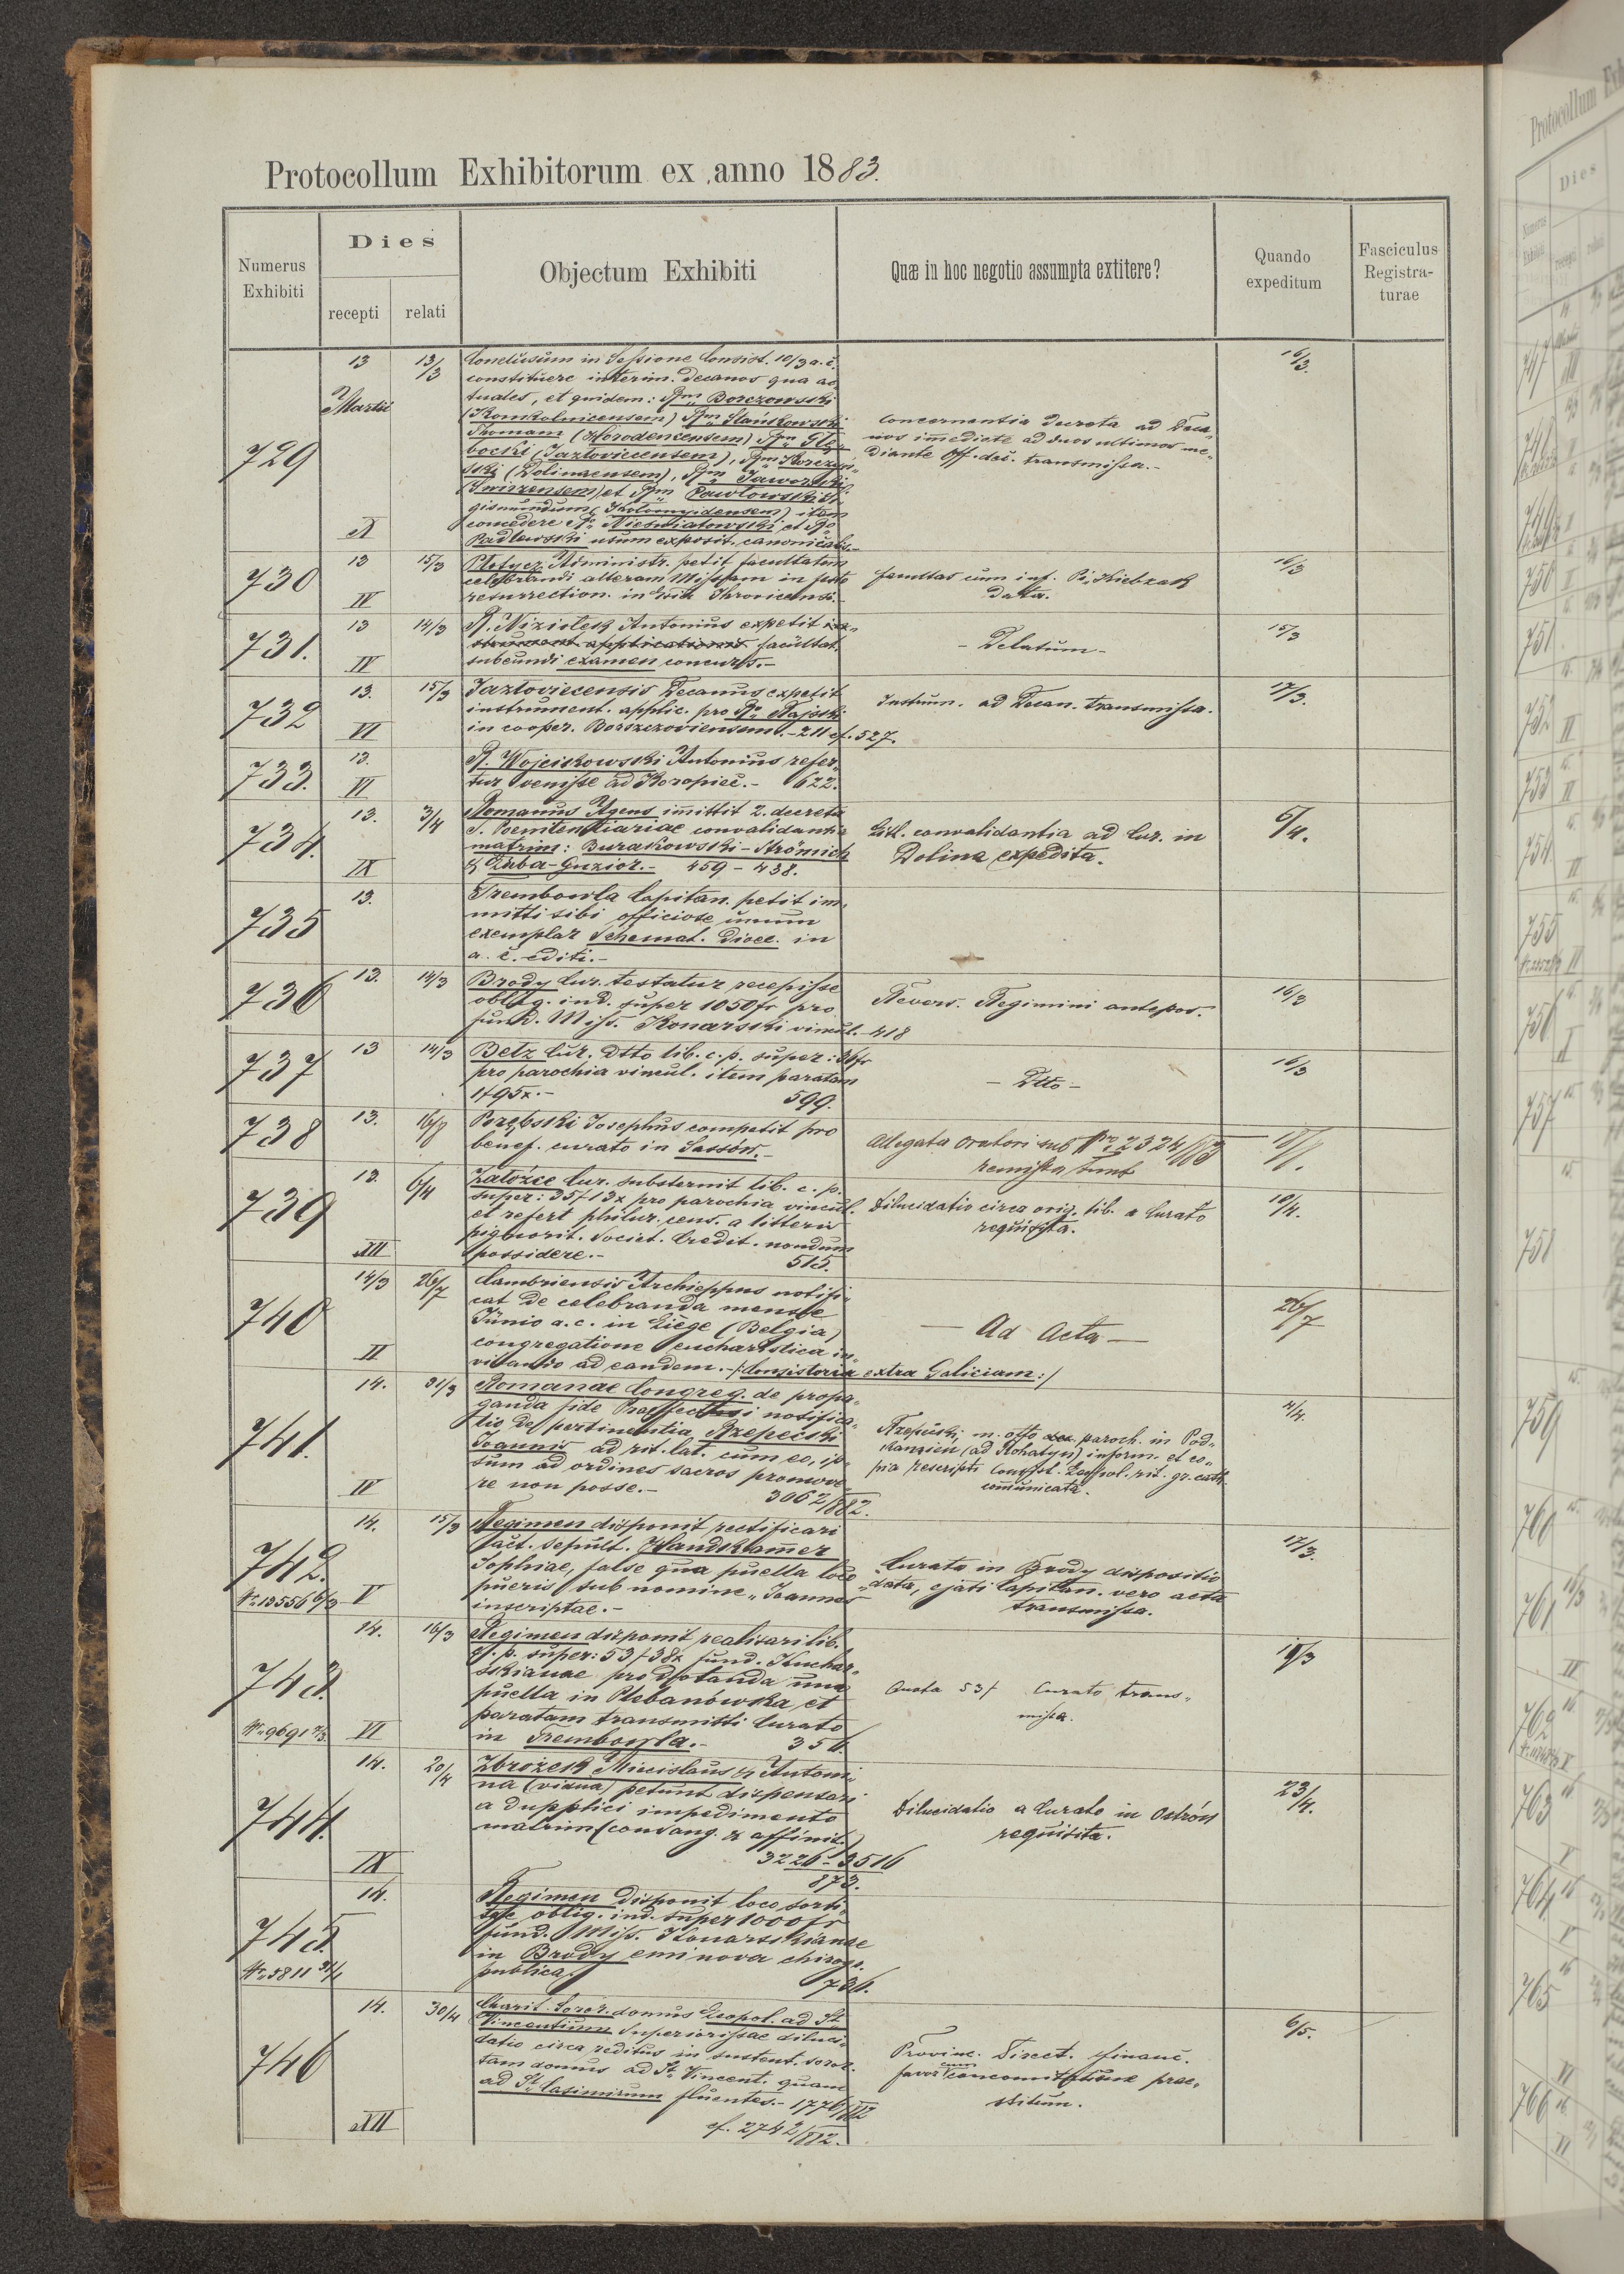 Protocollum Exhibitorum ex anno 1883.
Numerus Exhibiti
Dies
recepti
relati
Objectum Exhibiti
Quæ in hoc negotio assumpta extitere?
Quando expeditum
Fasciculus Registra-turae
729
13 Martii
13/3
X
Conclusum in Sessione Consist. 10/3 a. c.
constituere interim. Decanos qua ac-
tuales, et quidem: Rm„ Borczowski
Rm„ Stańkowski
Thomam (Horodencensem) Rm„ Głę-
bocki (Jazłoviecensem), Rm„ Korczyń-
ski (Dolinaensem), Rm„ Jaworski
(Swirzensem) et Rm„ Pawłowski Si-
gismundum (Kolomyidensem) item
concedere Ro„ Nieświatowski et Ro„
Padlewski usum exposit. canonicalis.-
concernentia decreta ad Deca-
nos imediate ad duos ultimos me-
diante Off. dec. transmissa.-
16/3.
730
13
15/3
IV
Administr. petit facultatem
celebrandi alteram Missam in festo
resurrection. in
facultas cum inf.
data.
16/3
731.
13
14/3
IV
R. Niziołek Antonius expetit
applicationis facultat.
subeundi examen concurs.-
- Delatum -
15/3
732
13.
15/3
VI
Jazłoviecensis Decanus expetit
instrument. applic. pro Ro„ Rajski
in cooper. Borszczoviensem.- 211 cf. 527.
Instrum. ad Decan. transmissa.
17/3.
733.
13.
VI
R. Wojcikowski Antonius refer-
tur venisse ad Koropiec.- 622.
734.
13.
3/4
IX
Romanus Agens imittit 2. decreta
S. Poenitentiariae convalidantia
matrim: Burakowski - Strömich
& Żaba - Guzior.- 459 - 438.
convalidantia ad Cur. in
Dolina expedita.
6/4.
735
13.
Trembowla Capitan. petit im-
mitti sibi officiose unum
exemplar Schemat. Dioec. in
a. c. editi.-
736
13.
14/3
Brody Cur. testatur recepisse
oblig. ind. super 1050 fr pro
fund. Miss. Konarski vincul.- 418
Revers. Regimini antepos.
16/3
737
13
14/3
Bełz Cur. Dtto lib. c. p. super: 36 fr
pro parochia vincul. item paratam
1f 95x.- 599.
- Dtto -
16/3
738
13.
16/8
Porębski Josephus competit pro
benef. curato in Sassów.-
Allegata Oratori sub No„ 2324/883
remissa sunt
18/8.
739
13.
6/4
XII
Załoźce Cur. substernit lib. c. p.
super: 35f 13x pro parochia vincul.
et refert philur. cens. a litteris
pignorit. Societ. Credit. nondum
possidere.- 515.
Dilucidatio circa orig. lib. a Curato
requisita.
10/4.
740
14/3
26/7
II
Archieppus notifi-
cat de celebranda mense
Junio a. c. in Liège (Belgia)
congregatione eucharistica in-
vitando ad eandem.- /:Consistoria extra Galiciam:/
— Ad Acta —
26/7
741.
14.
31/3
IV
Romanae Congreg. de propa-
ganda fide Praefecti notifica-
tio de pertinentia Rzepecki
Joannis ad rit. lat. cum eo, ip-
sum ad ordines sacros promove-
re non posse.- 3062/882.
paroch. in Pod-
kamień (ad Rohatyn) inform. et co-
pia rescripti Consist. Leopol. rit. gr. cath
comunicata.
4/4.
742.
Nr„ 13556 6/3
14.
15/3
V
Regimen disponit rectificari
fact. sepult. Handklamer
Sophiae, false qua puella loco
pueris sub nomine „Joannes"
inscriptae.-
Curato in Brody dispositio
data, ejati Capitan. vero acta
transmissa.
17/3.
743.
Nr„ 9691 2/3.
14.
16/3
VI
Regimen disponit realisari lib.
c. p. super: 53f 38x fund. Kuchar-
skianae pro dotanda una
puella in Plebanówka et
paratam transmitti Curato
in Trembowla.- 356.
Quota 53f Curato trans-
missa.
19/3
744.
14.
20/4
IX
Zbrożek Miecislaus & Antoni-
na (vidua) petunt dispensari
a dupplici impedimento
matrim (consang. & affinit.)
3226 - 3516
873.
Dilucidatio a Curato in Ostrów
requisita.
23/4.
745
Nr„ 5811 31/1
14.
Regimen disponit loco sorti-
tae oblig. ind. super 1000 fr
fund. Miss. Konarskianae
in Brody emi nova chirogr.
publica. 736.
746
14.
30/4
XII
Charit. Soror. domus Leopol. ad St.
Vincentium Superiorissae diluci-
datio circa reditus in sustent. soror.
tam domus ad St. Vincent. quam
ad St. Casimirum fluentes.- 1776/882
cf. 2742/882.
Provinc. Direct. financ.
favor. cum concomitatione prae-
stitum.
6/5.
Protocollum Exh
Dies
747
750
751
752
753
754
755
756
757
758
759
760
761
762
763
764
765
766